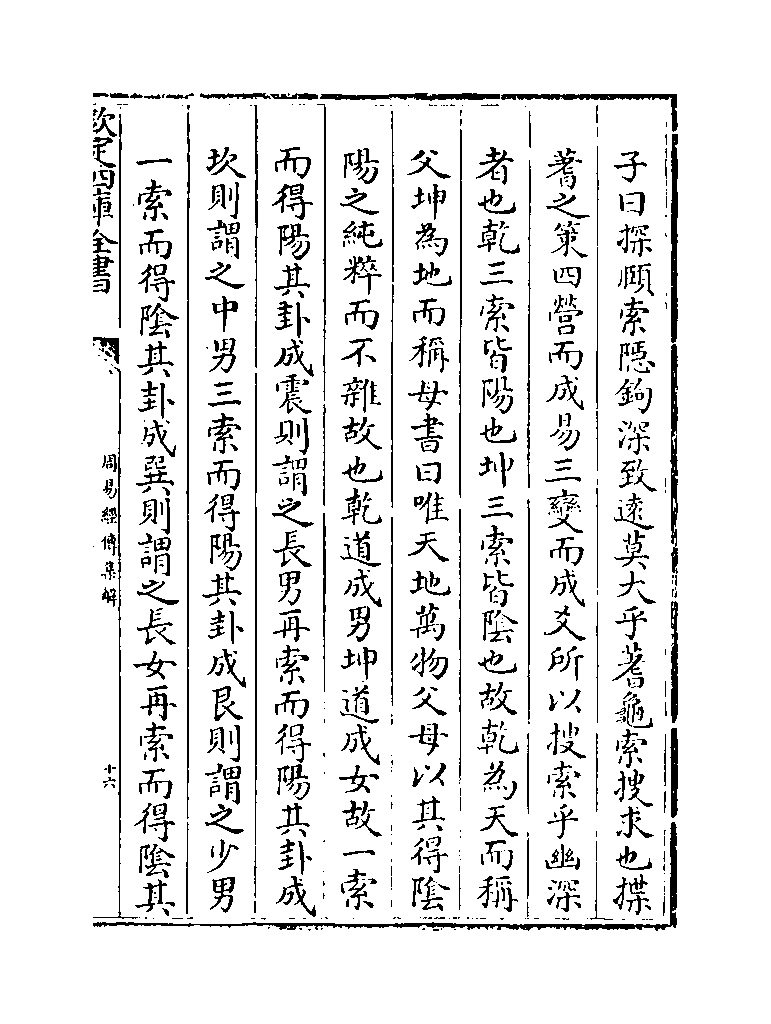 子曰探賾索隱鉤深致遠莫大乎蓍龜索搜求也揲
蓍之策四營而成易三變而成爻所以搜索乎幽深
者也乾三索皆陽也坤三索皆陰也故乾為天而稱
父坤為地而稱母書曰唯天地萬物父母以其得陰
陽之純粹而不雜故也乾道成男坤道成女故一索
而得陽其卦成震則謂之長男再索而得陽其卦成
坎則謂之中男三索而得陽其卦成艮則謂之少男
一索而得陰其卦成巽則謂之長女再索而得陰其
欽定四庫全書
周易經傳集解
十六